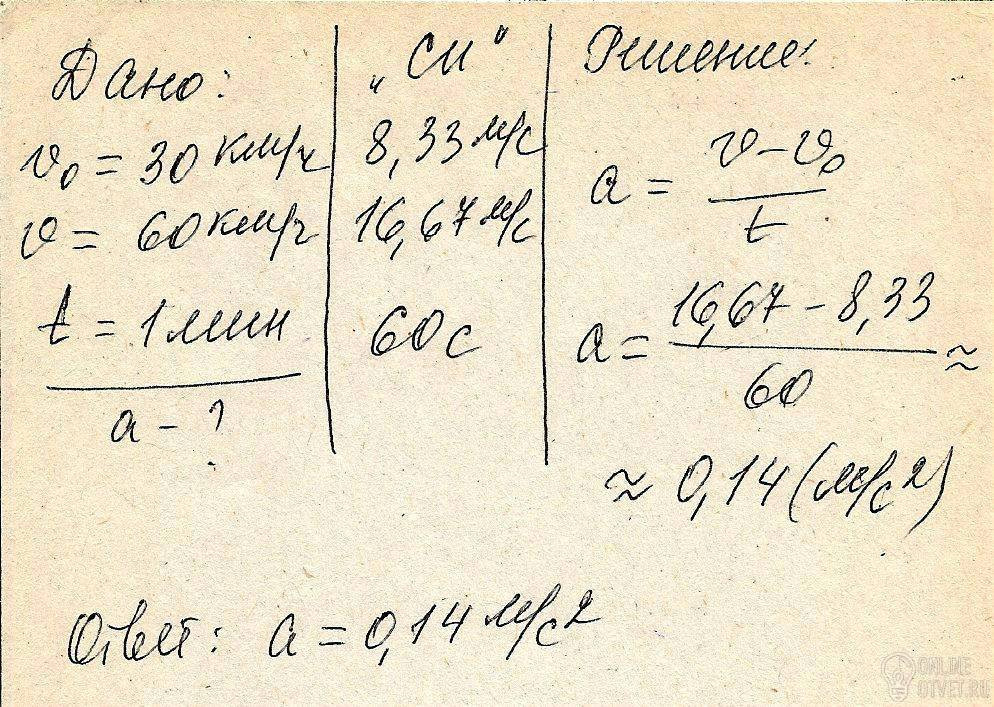 Дано:
v₀ = 30 км/ч
v = 60 км/ч
t = 1 мин
a – ?
„СИ"
8,33 м/с
16,67 м/с
60 с
Решение:
a = (v – v₀) / t
a = (16,67 – 8,33) / 60 ≈
≈ 0,14 (м/с²)
Ответ: a = 0,14 м/с²
ONLINE
OTVET.RU